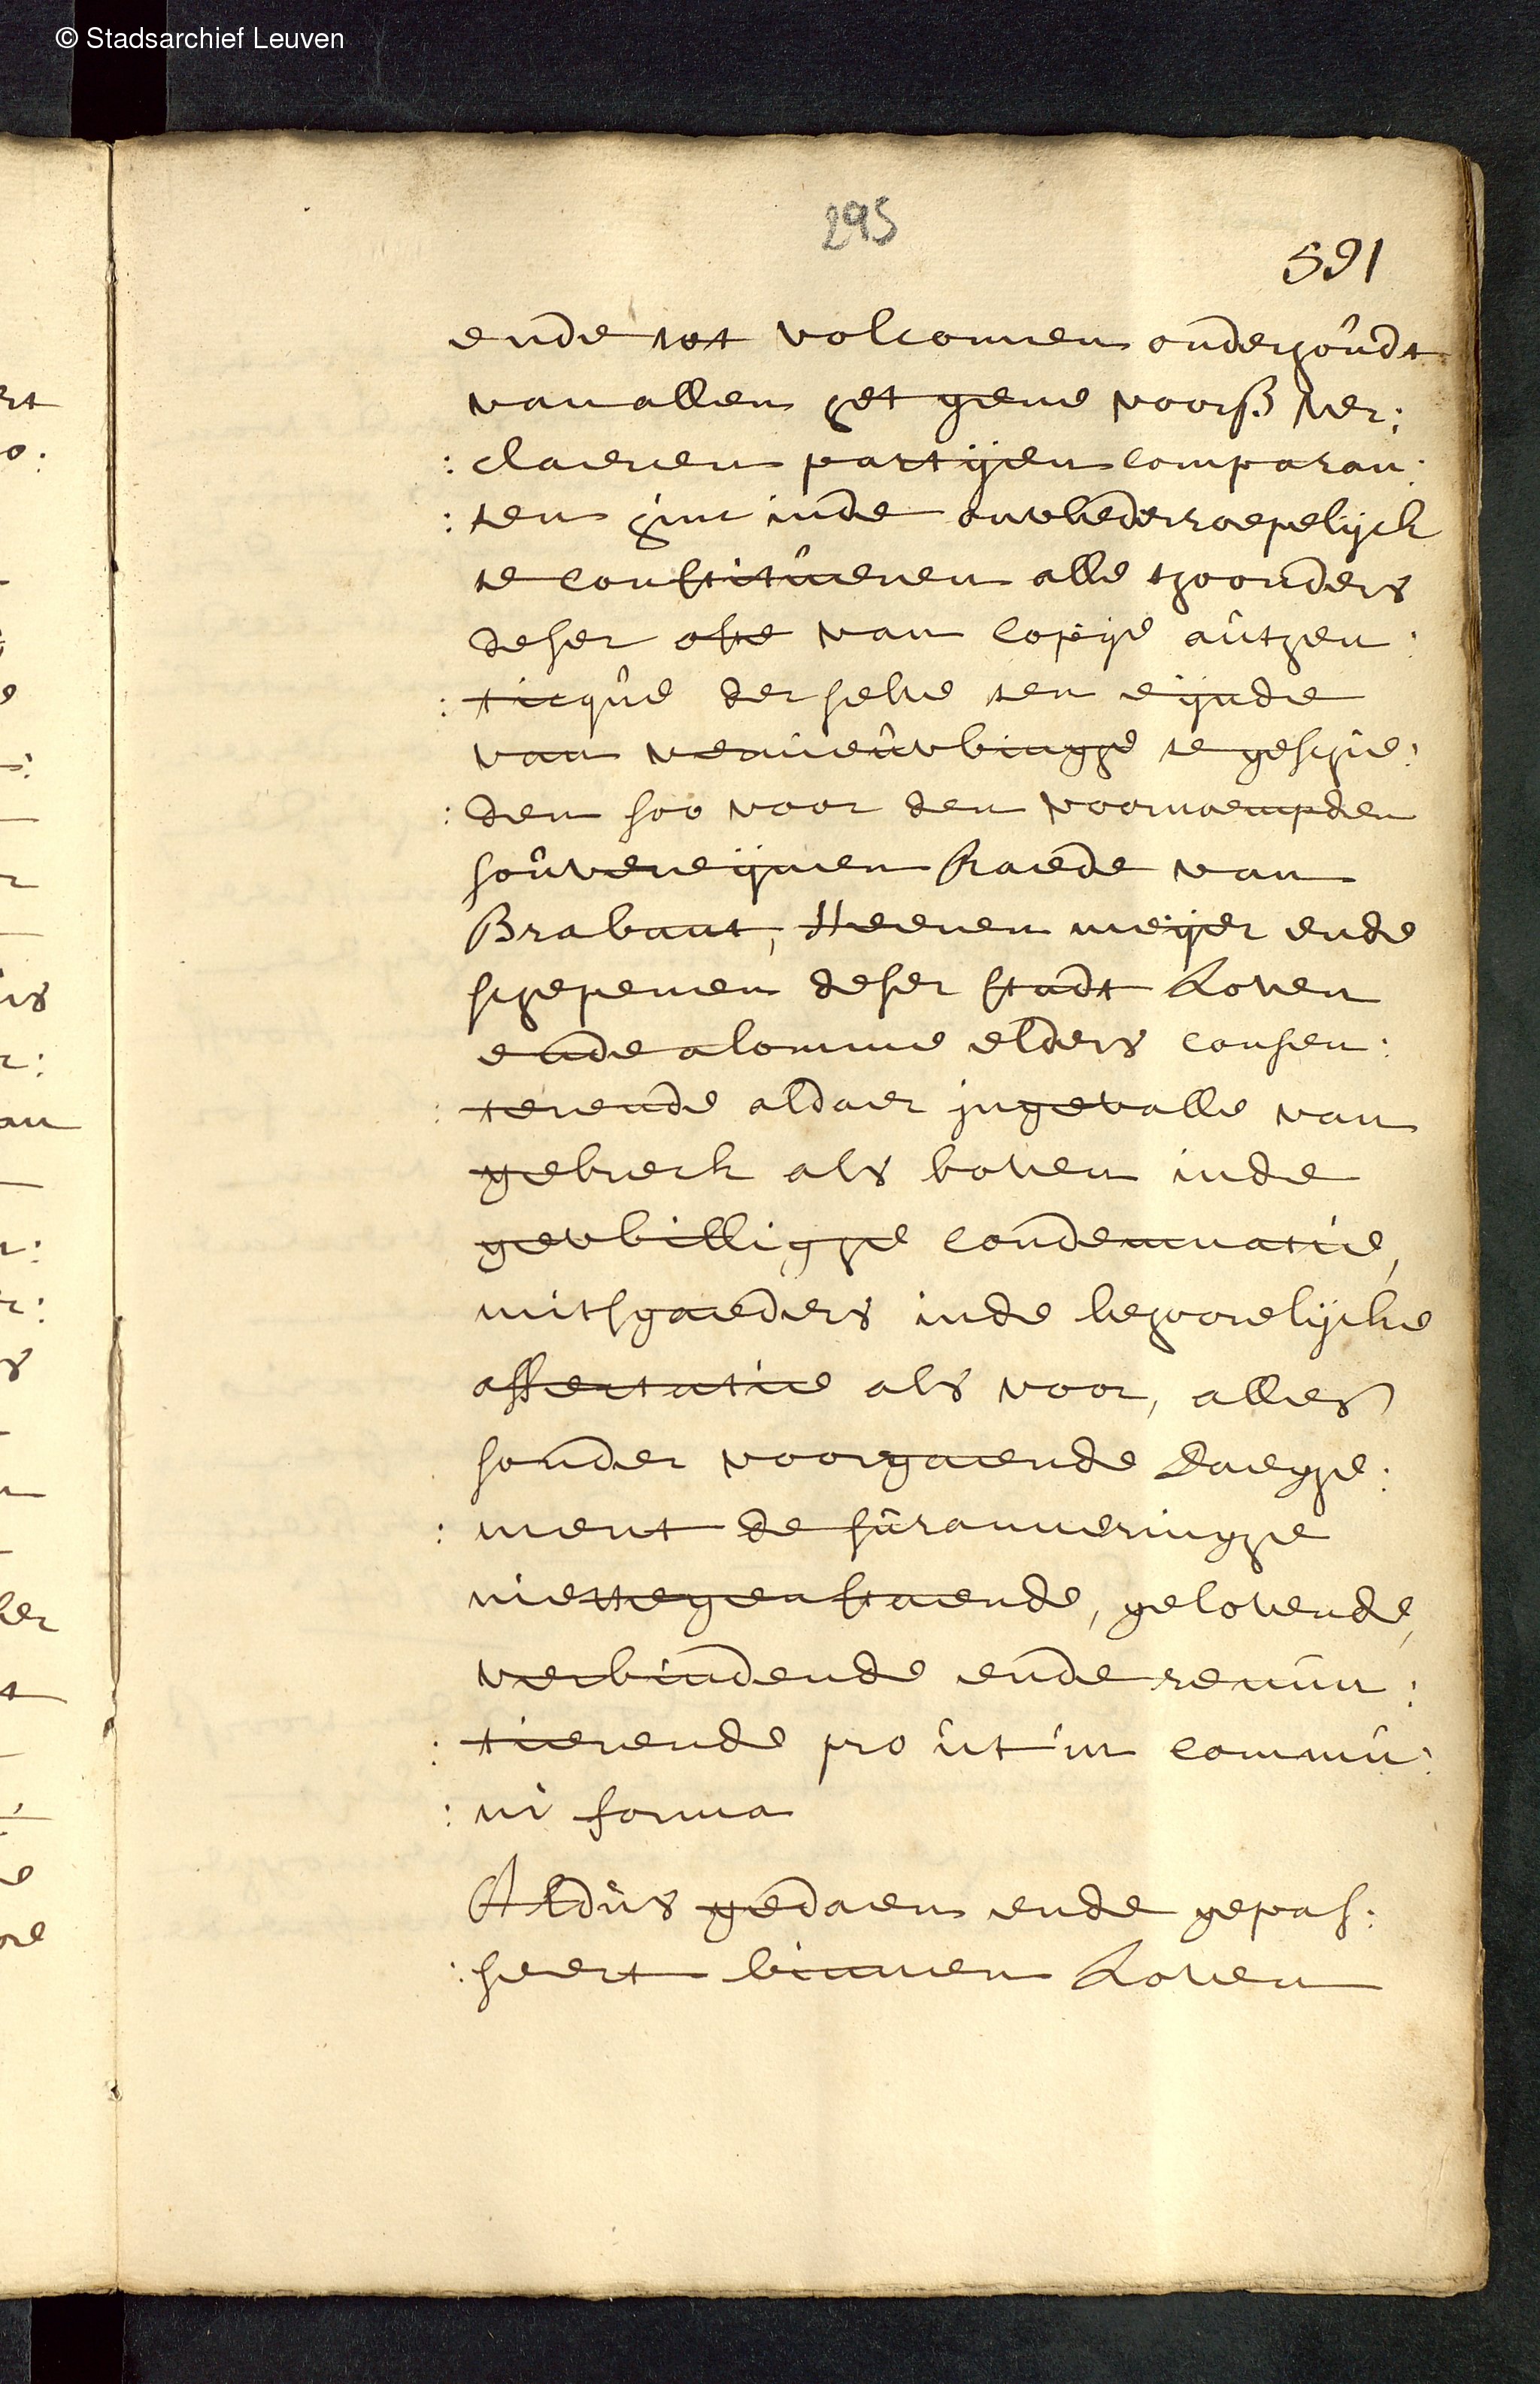 © Stadsarchief Leuven
295
591
ende tot volcomen onderhoudt
van allen het gene voors. ver:
: claeren partijen comparan:
: ten hun inde onwederroepelijck
te constitueren alle thoonders
deser ofte van copije authen:
: ticque der selve ten eijnde
van vernieuwinghe te geschie:
: den soo voor den voornoempden
souvereijnen Raede van
Brabant, Heeren meijer ende
schepenen deser stadt Loven
ende alomme elders consen:
: terende aldaer ingevalle van
gebreck als boven inde
gewillighe condemnatie,
mitsgaeders inde behoorelijcke
affectatie als voor, alles
sonder voorgaende daeghe:
: ment de suranneringhe
niettegenstaende, gelovende,
verbindende ende renun:
: tierende pro ut in commu:
: ni forma
Aldus gedaen ende gepas:
: seert binnen Loven